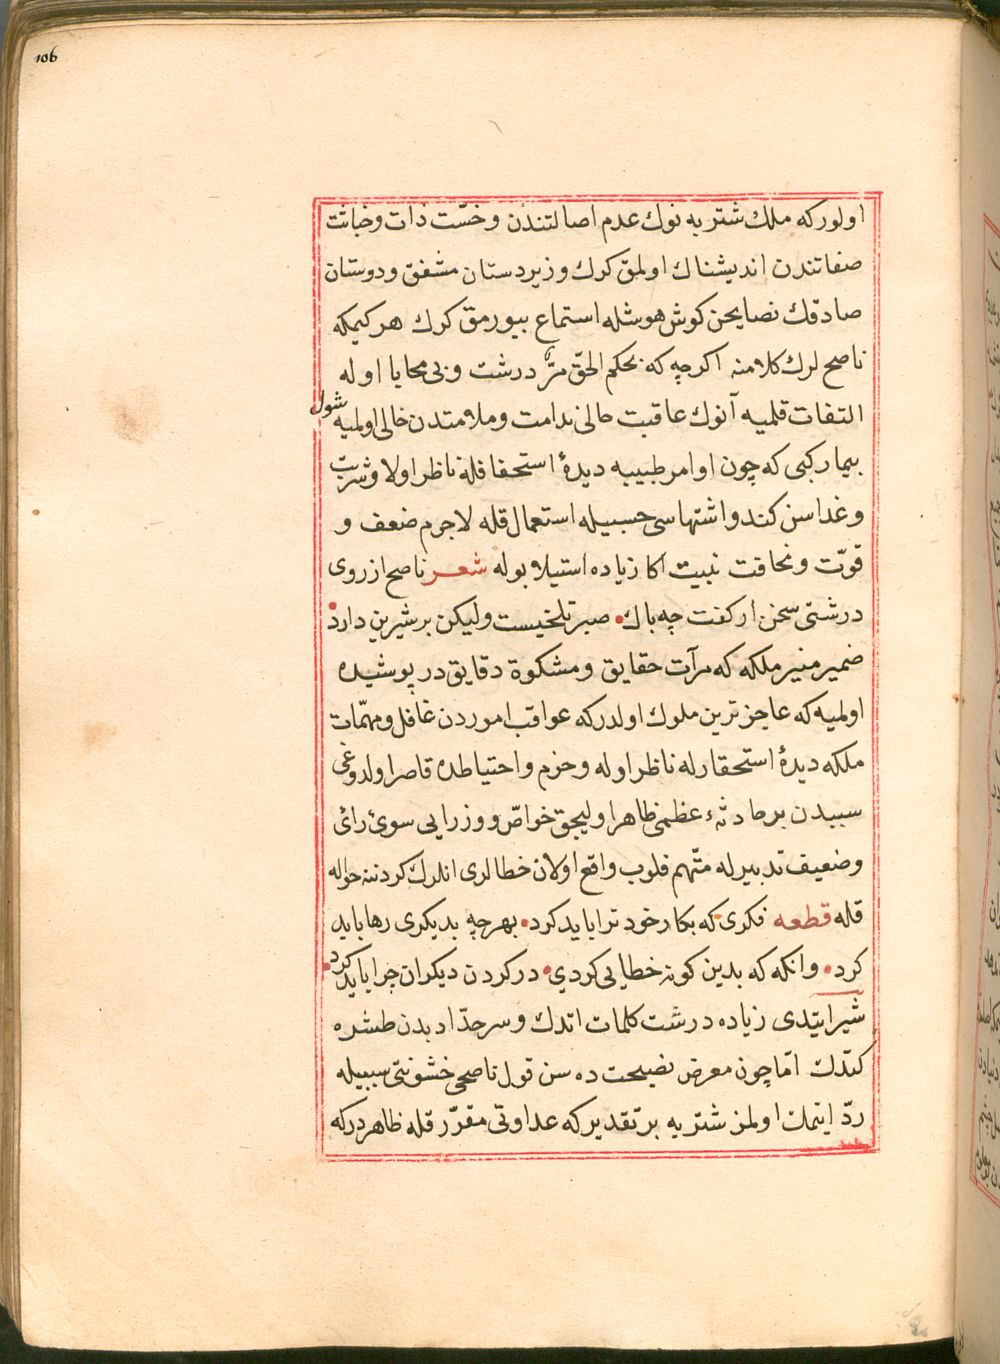 106
اولورکه ملك شتربه نوك عدم اصالتندن وخسّت ذات وخباثت
صفاتندن اندیشناك اولمق کرك وزیردستان مشفق ودوستان
صادقك نصایحن کوش هوشله استماع بیورمق کرك هرکیمکه
ناصح لرك کلامنه اکرچه که بحکم الحقّ مرٌّ درشت وبی محابا اوله
التفات قلمیه آنوك عاقبت حالی ندامت وملامتدن خالی اولمیه شول
بیمارکبی که چون اوامر طبیبه دیدۀ استخفافله ناظر اولا وشربت
وغداسن کندو اشتهاسی حسبیله استعمال قله لاجرم ضعف و
قوّت ونحافت نبیت اکا زیاده استیلا بوله شعر ناصح ازروی
درشتی سخن ارکفت چه باك صبر تلخیست ولیکن بر شیرین دارد
ضمیر منیر ملکه که مرآت حقایق ومشکوة دقایق در پوشیده
اولمیه که عاجزترین ملوك اولدرکه عواقب اموردن غافل ومهمّات
ملکه دیدۀ استحقارله ناظر اوله وحزم واحتیاطده قاصر اولدوغی
سببدن بر حادثۀ عظمی ظاهر اولیجق خواصّ ووزرایی سوئ رائ
وضعیف تدبیرله متّهم قلوب واقع اولان خطالری انلرك کردننه حواله
قله قطعه فکری که بکار خود ترا باید کرد بهرچه بدیکری رها باید
کرد وانکه که بدین کونه خطایی کردي در کردن دیکران چرا باید کرد
شیر ایتدی زیاده درشت کلمات اتدك وسرحدّ ادبدن طشره
کتدك امّا چون معرض نصیحت ده سن قول ناصحی خشونتی سببیله
ردّ ایتمك اولمز شتربه بر تقدیرکه عداوتی مقرّر قله ظاهردرکه